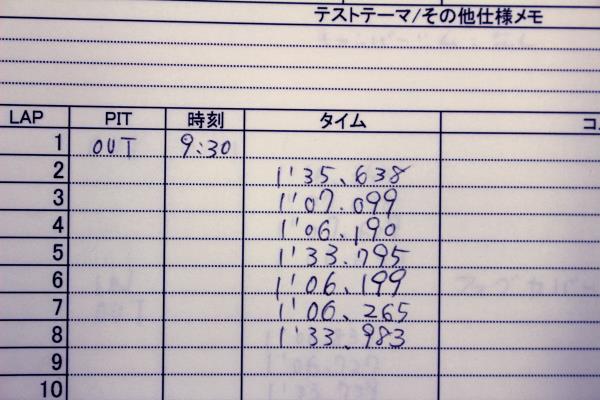 テストテーマ/その他仕様メモ
LAP PIT 時刻 タイム コ
1 OUT 9:30
2 1'35.638
3 1'07.099
4 1'06.190
5 1'33.795
6 1'06.199
7 1'06.265
8 1'33.983
9
10